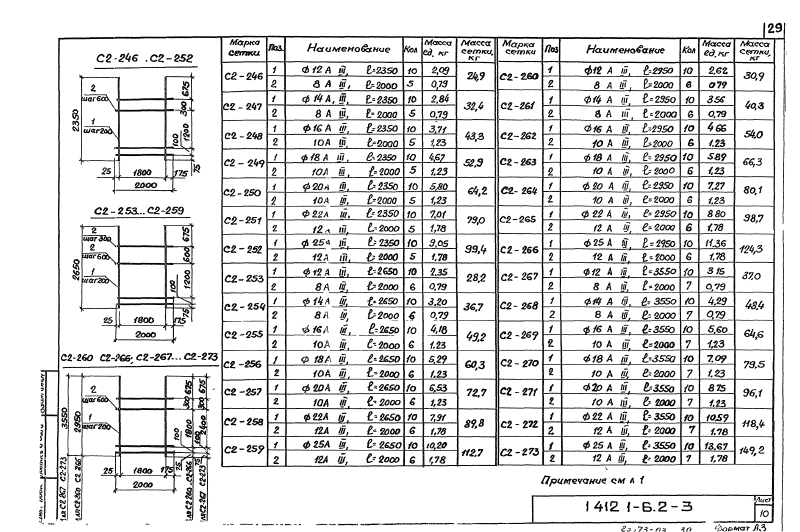 29
С2-246 . С2-252
2
шаг600
1
шаг200
2350
675
300
1200
100
75
25 1800 175
2000
С2-253... С2-259
2
шаг300
2
шаг600
1
шаг200
2650
675
600
1200
100
75
25 1800 175
2000
С2-260 С2-266; С2-267... С2-273
2
шаг600
1
шаг200
3550
2950
675
675
300
300
1800
2400
100
100
75
75
25 1800 175
2000
Марка сетки Поз. Наименование Кол Масса ед, кг Масса сетки, кг
С2-246 1 Ф12А III, ℓ=2350 10 2,09 24,9
2 8А III, ℓ=2000 5 0,79
С2-247 1 Ф14А III, ℓ=2350 10 2,84 32,4
2 8А III, ℓ=2000 5 0,79
С2-248 1 Ф16А III, ℓ=2350 10 3,71 43,3
2 10А III, ℓ=2000 5 1,23
С2-249 1 Ф18А III, ℓ=2350 10 4,67 52,9
2 10А III, ℓ=2000 5 1,23
С2-250 1 Ф20А III, ℓ=2350 10 5,80 64,2
2 10А III, ℓ=2000 5 1,23
С2-251 1 Ф22А III, ℓ=2350 10 7,01 79,0
2 12А III, ℓ=2000 5 1,78
С2-252 1 Ф25А III, ℓ=2350 10 9,05 99,4
2 12А III, ℓ=2000 5 1,78
С2-253 1 Ф12А III, ℓ=2650 10 2,35 28,2
2 8А III, ℓ=2000 6 0,79
С2-254 1 Ф14А III, ℓ=2650 10 3,20 36,7
2 8А III, ℓ=2000 6 0,79
С2-255 1 Ф16А III, ℓ=2650 10 4,18 49,2
2 10А III, ℓ=2000 6 1,23
С2-256 1 Ф18А III, ℓ=2650 10 5,29 60,3
2 10А III, ℓ=2000 6 1,23
С2-257 1 Ф20А III, ℓ=2650 10 6,53 72,7
2 10А III, ℓ=2000 6 1,23
С2-258 1 Ф22А III, ℓ=2650 10 7,91 89,8
2 12А III, ℓ=2000 6 1,78
С2-259 1 Ф25А III, ℓ=2650 10 10,20 112,7
2 12А III, ℓ=2000 6 1,78
Марка сетки Поз. Наименование Кол Масса ед, кг Масса сетки, кг
С2-260 1 Ф12А III, ℓ=2950 10 2,62 30,9
2 8А III, ℓ=2000 6 0,79
С2-261 1 Ф14А III, ℓ=2950 10 3,56 40,3
2 8А III, ℓ=2000 6 0,79
С2-262 1 Ф16А III, ℓ=2950 10 4,66 54,0
2 10А III, ℓ=2000 6 1,23
С2-263 1 Ф18А III, ℓ=2950 10 5,89 66,3
2 10А III, ℓ=2000 6 1,23
С2-264 1 Ф20А III, ℓ=2950 10 7,27 80,1
2 10А III, ℓ=2000 6 1,23
С2-265 1 Ф22А III, ℓ=2950 10 8,80 98,7
2 12А III, ℓ=2000 6 1,78
С2-266 1 Ф25А III, ℓ=2950 10 11,36 124,3
2 12А III, ℓ=2000 6 1,78
С2-267 1 Ф12А III, ℓ=3550 10 3,15 37,0
2 8А III, ℓ=2000 7 0,79
С2-268 1 Ф14А III, ℓ=3550 10 4,29 48,4
2 8А III, ℓ=2000 7 0,79
С2-269 1 Ф16А III, ℓ=3550 10 5,60 64,6
2 10А III, ℓ=2000 7 1,23
С2-270 1 Ф18А III, ℓ=3550 10 7,09 79,5
2 10А III, ℓ=2000 7 1,23
С2-271 1 Ф20А III, ℓ=3550 10 8,75 96,1
2 10А III, ℓ=2000 7 1,23
С2-272 1 Ф22А III, ℓ=3550 10 10,59 118,4
2 12А III, ℓ=2000 7 1,78
С2-273 1 Ф25А III, ℓ=3550 10 13,67 149,2
2 12А III, ℓ=2000 7 1,78
Примечание см л 1
1 412 1-6.2-3
Лист
10
Формат А3